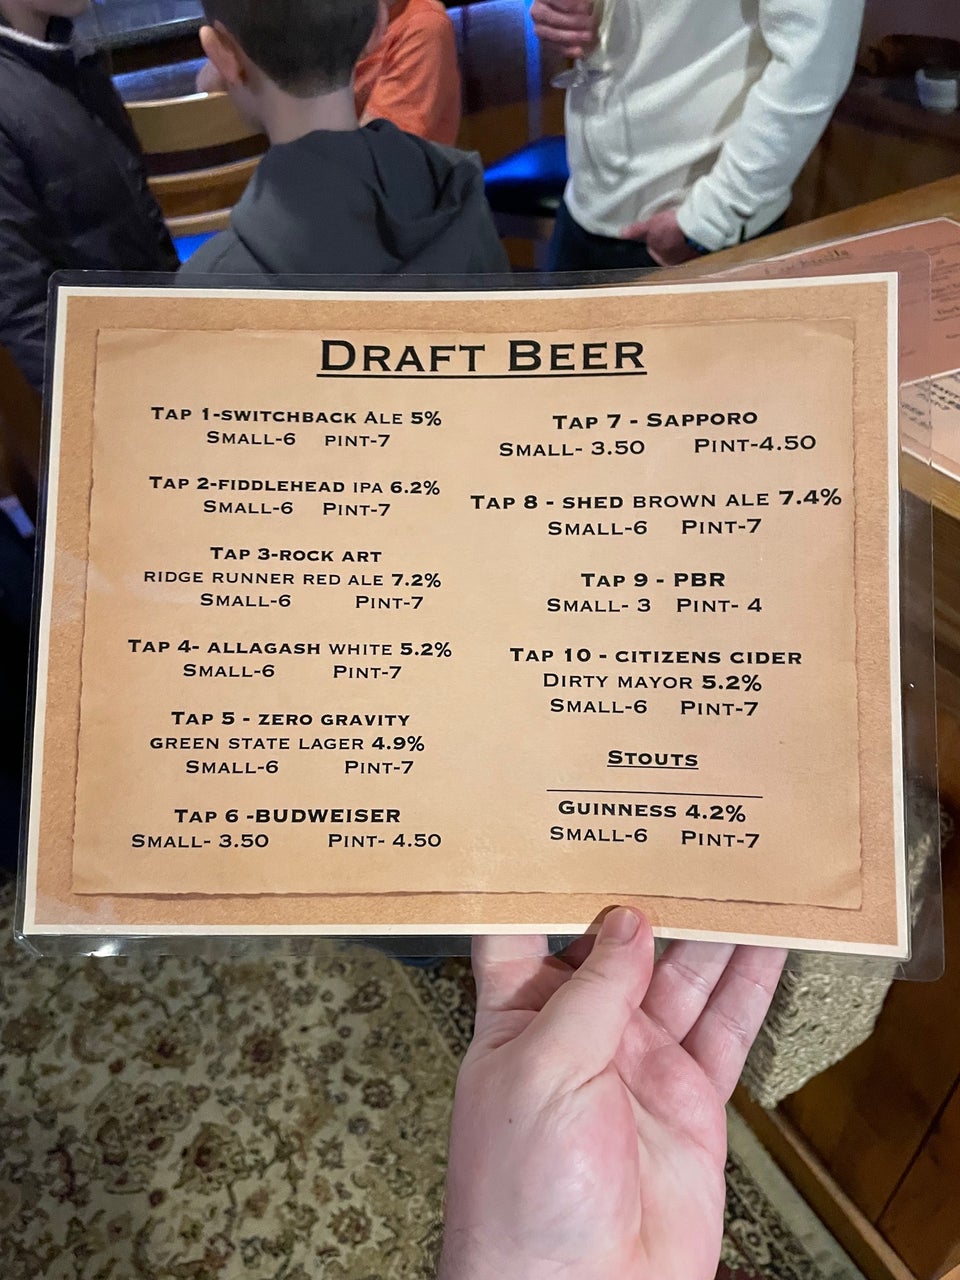 DRAFT BEER
TAP 1-SWITCHBACK ALE 5%
SMALL-6 PINT-7
TAP 2-FIDDLEHEAD IPA 6.2%
SMALL-6 PINT-7
TAP 3-ROCK ART
RIDGE RUNNER RED ALE 7.2%
SMALL-6 PINT-7
TAP 4- ALLAGASH WHITE 5.2%
SMALL-6 PINT-7
TAP 5 - ZERO GRAVITY
GREEN STATE LAGER 4.9%
SMALL-6 PINT-7
TAP 6 -BUDWEISER
SMALL- 3.50 PINT- 4.50
TAP 7 - SAPPORO
SMALL- 3.50 PINT-4.50
TAP 8 - SHED BROWN ALE 7.4%
SMALL-6 PINT-7
TAP 9 - PBR
SMALL- 3 PINT- 4
TAP 10 - CITIZENS CIDER
DIRTY MAYOR 5.2%
SMALL-6 PINT-7
STOUTS
GUINNESS 4.2%
SMALL-6 PINT-7